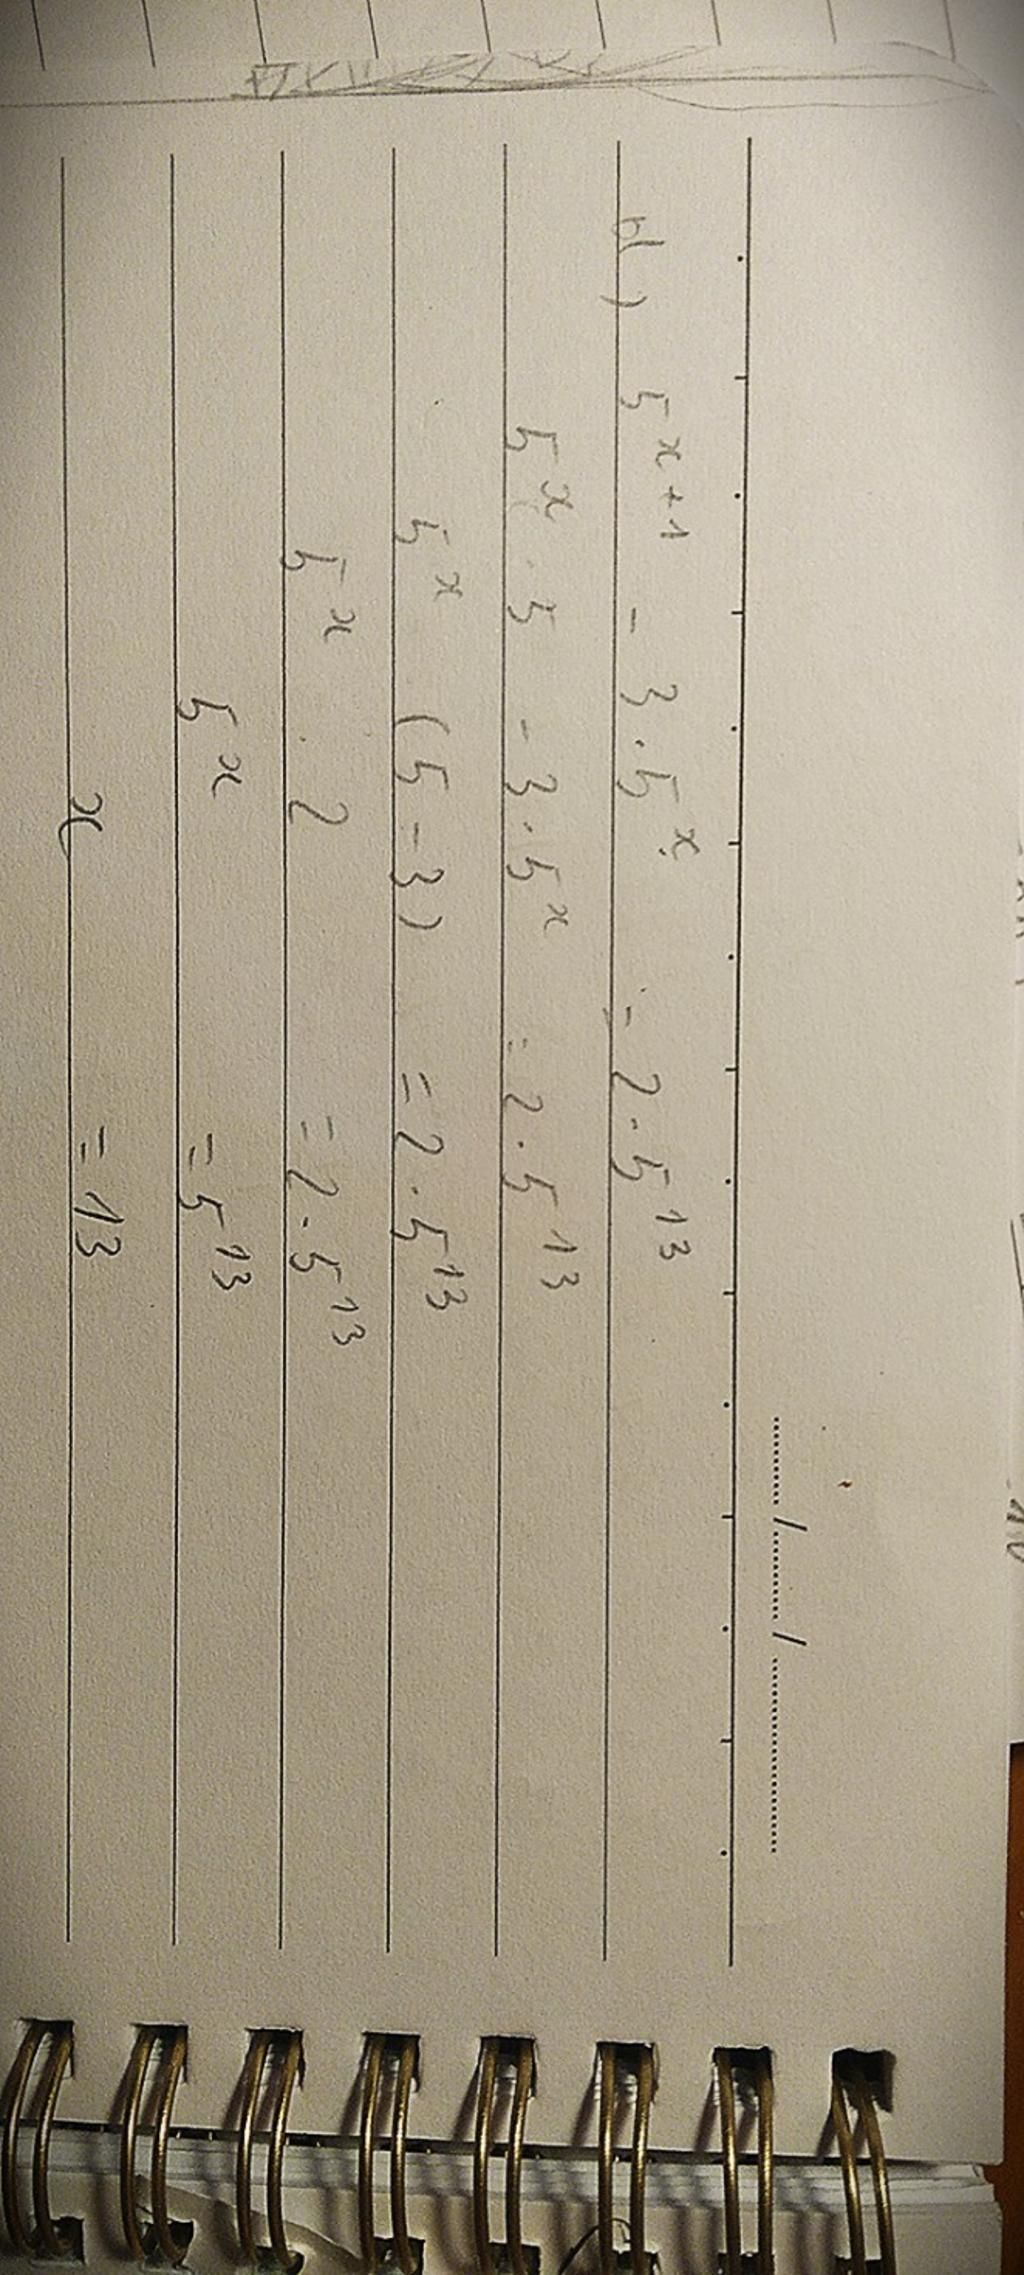 b) 5^{x+1} - 3.5^x = 2.5^{13}
5^x . 5 - 3.5^x = 2.5^{13}
5^x (5-3) = 2.5^{13}
5^x . 2 = 2.5^{13}
5^x = 5^{13}
x = 13